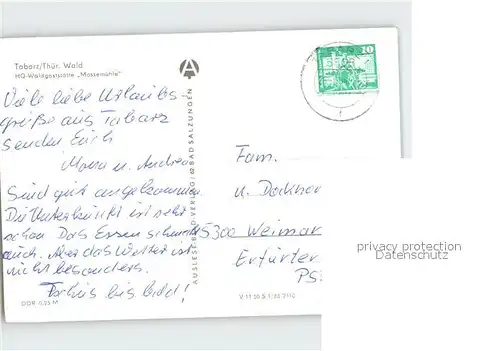 Tabarz/Thür. Wald
HO-Waldgaststätte „Massemühle"
Viele liebe Urlaubs-
grüße aus Tabarz
senden Euch
Mona u. Andrea
Sind gut angekommen.
Die Unterkunft ist sehr
schön Das Essen schmeckt
auch. Aber das Wetter ist
nicht besonders.
bis bald!
DDR 0,25 M
AUSLESE-BILD-VERLAG / 62 BAD SALZUNGEN
10
Fam.
u. Dockhor
5300 Weimar
Erfurter
PS
privacy protection
Datenschutz